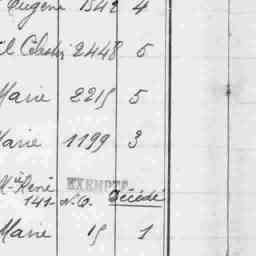 Eugène 1542 4
l Célestin 2448 5
Marie 2215 5
Marie 1199 3
M. René EXEMPTÉ Décédé
141 N.O.
Marie 15 1